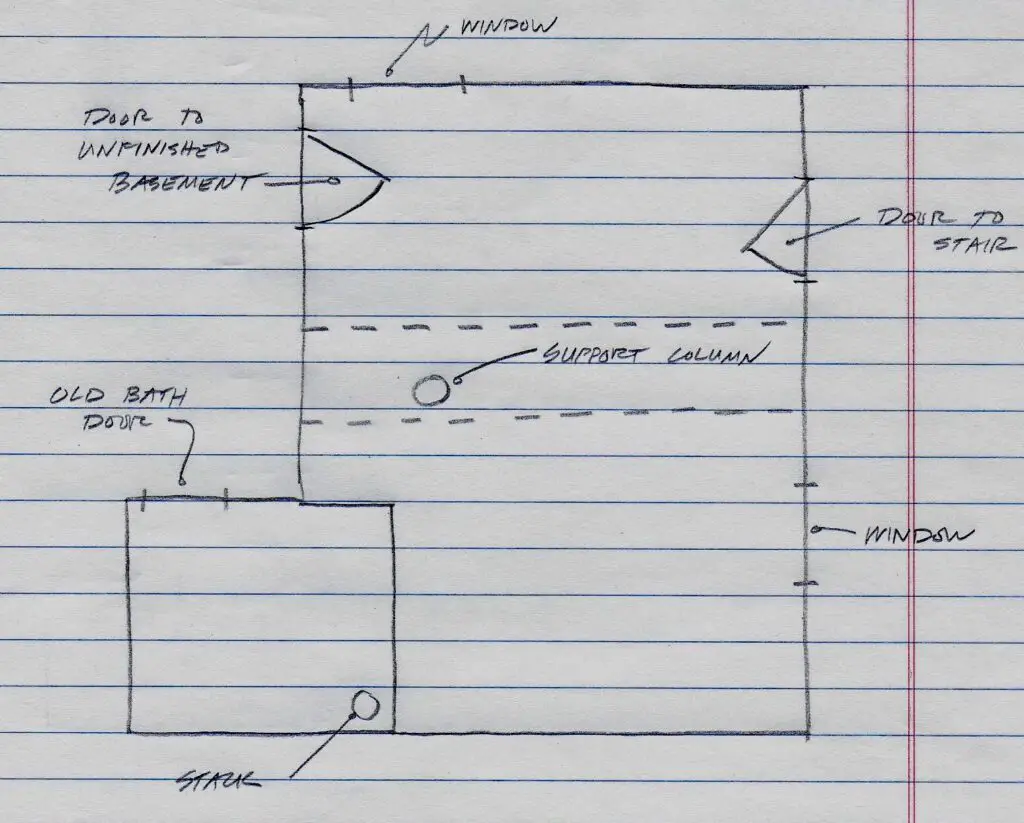 WINDOW
DOOR TO
UNFINISHED
BASEMENT
DOOR TO
STAIR
SUPPORT COLUMN
OLD BATH
DOOR
WINDOW
STACK